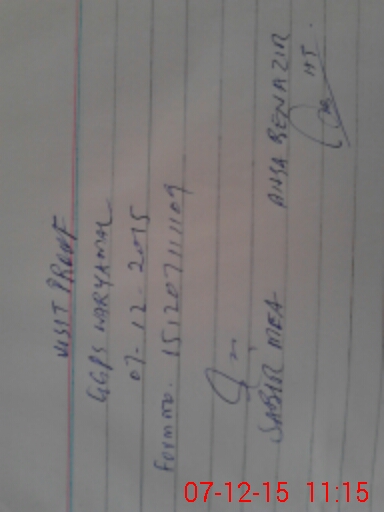 VISIT PROOF
GGPS WARYAMAL
07-12-2015
Form no. 151207111109
SABIR MEA
ANSA BENAZIR
HT
07-12-15 11:15